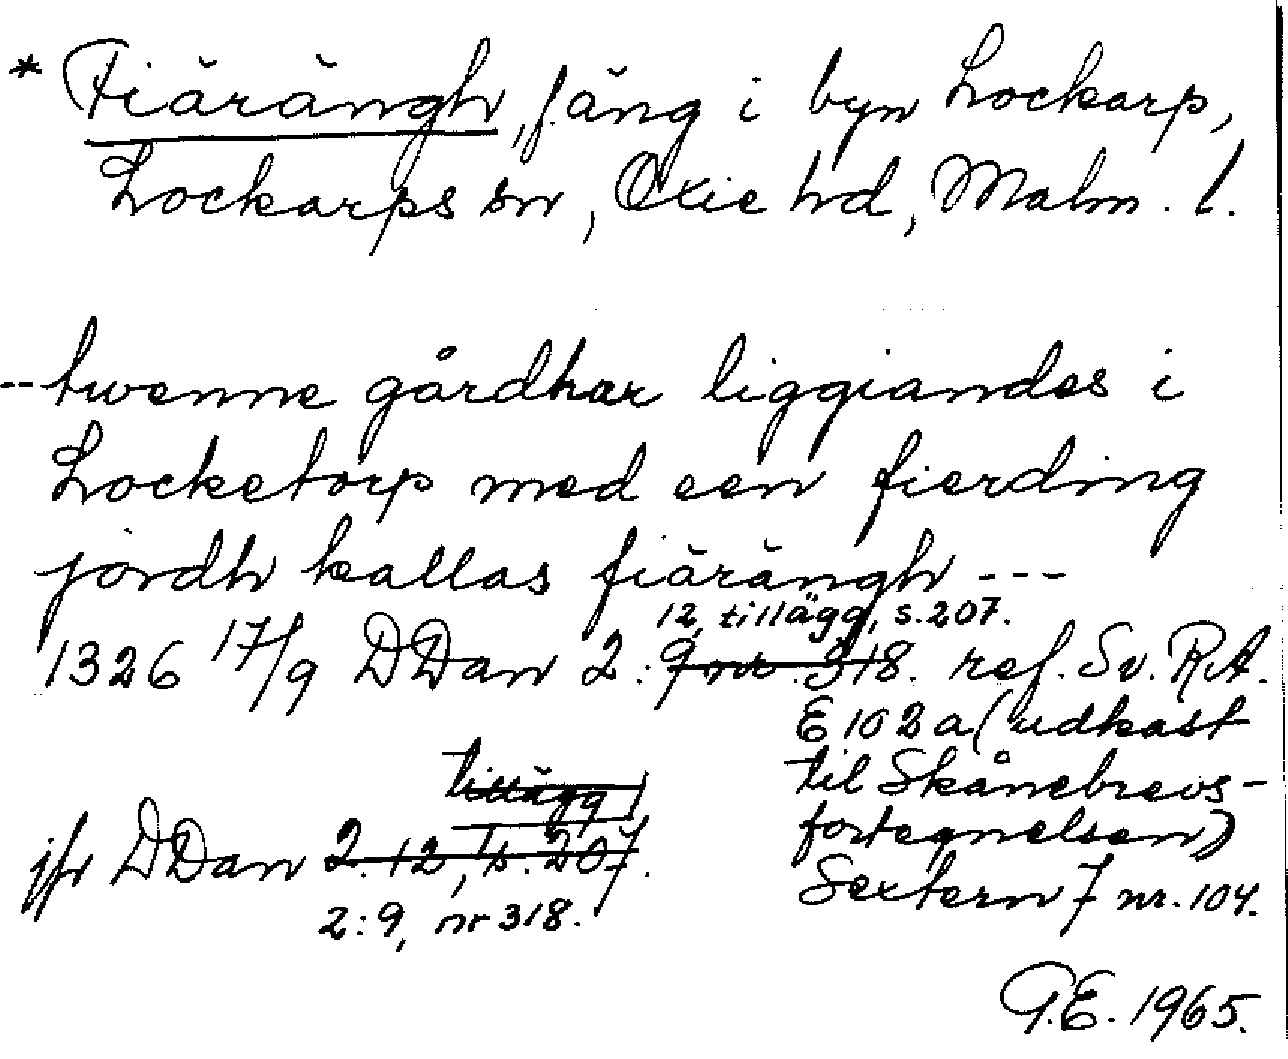 * Fiärängh, f. äng i byn Lockarp,
Lockarps sn, Oxie hd, Malm. l.
-- twenne gårdhar liggiandes i
Locketorp med een fierding
jordh kallas fiärängh ---
12, tillägg, s. 207.
1326 17/9 DDan 2: 9, nr 318. ref. Sv. RA.
E 102 a (udkast
til Skånebrevs-
fortegnelsen)
Sextern 7 nr. 104.
tillägg,
jfr DDan 2. 12, s. 207.
2:9, nr 318.
G.E. 1965.